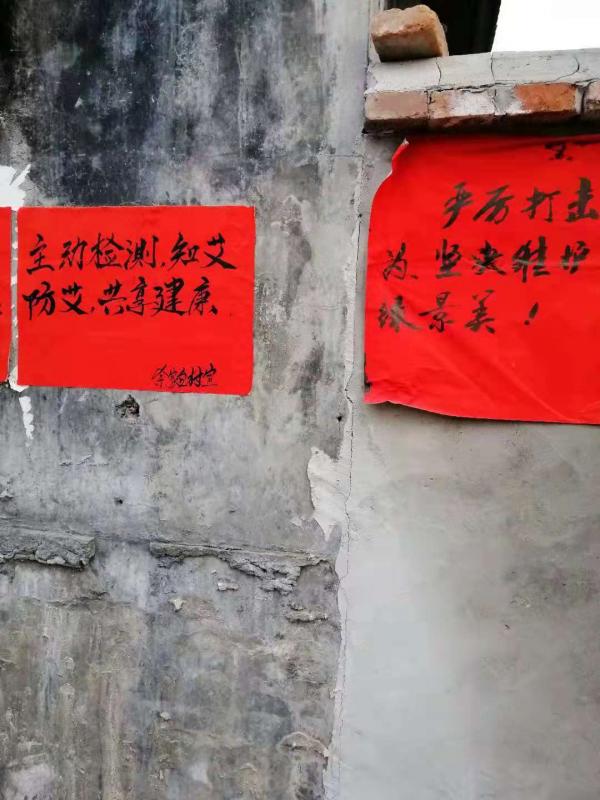 主动检测,知艾
防艾,共享建康
村宣
严厉打击
为、坚决维护
景美!